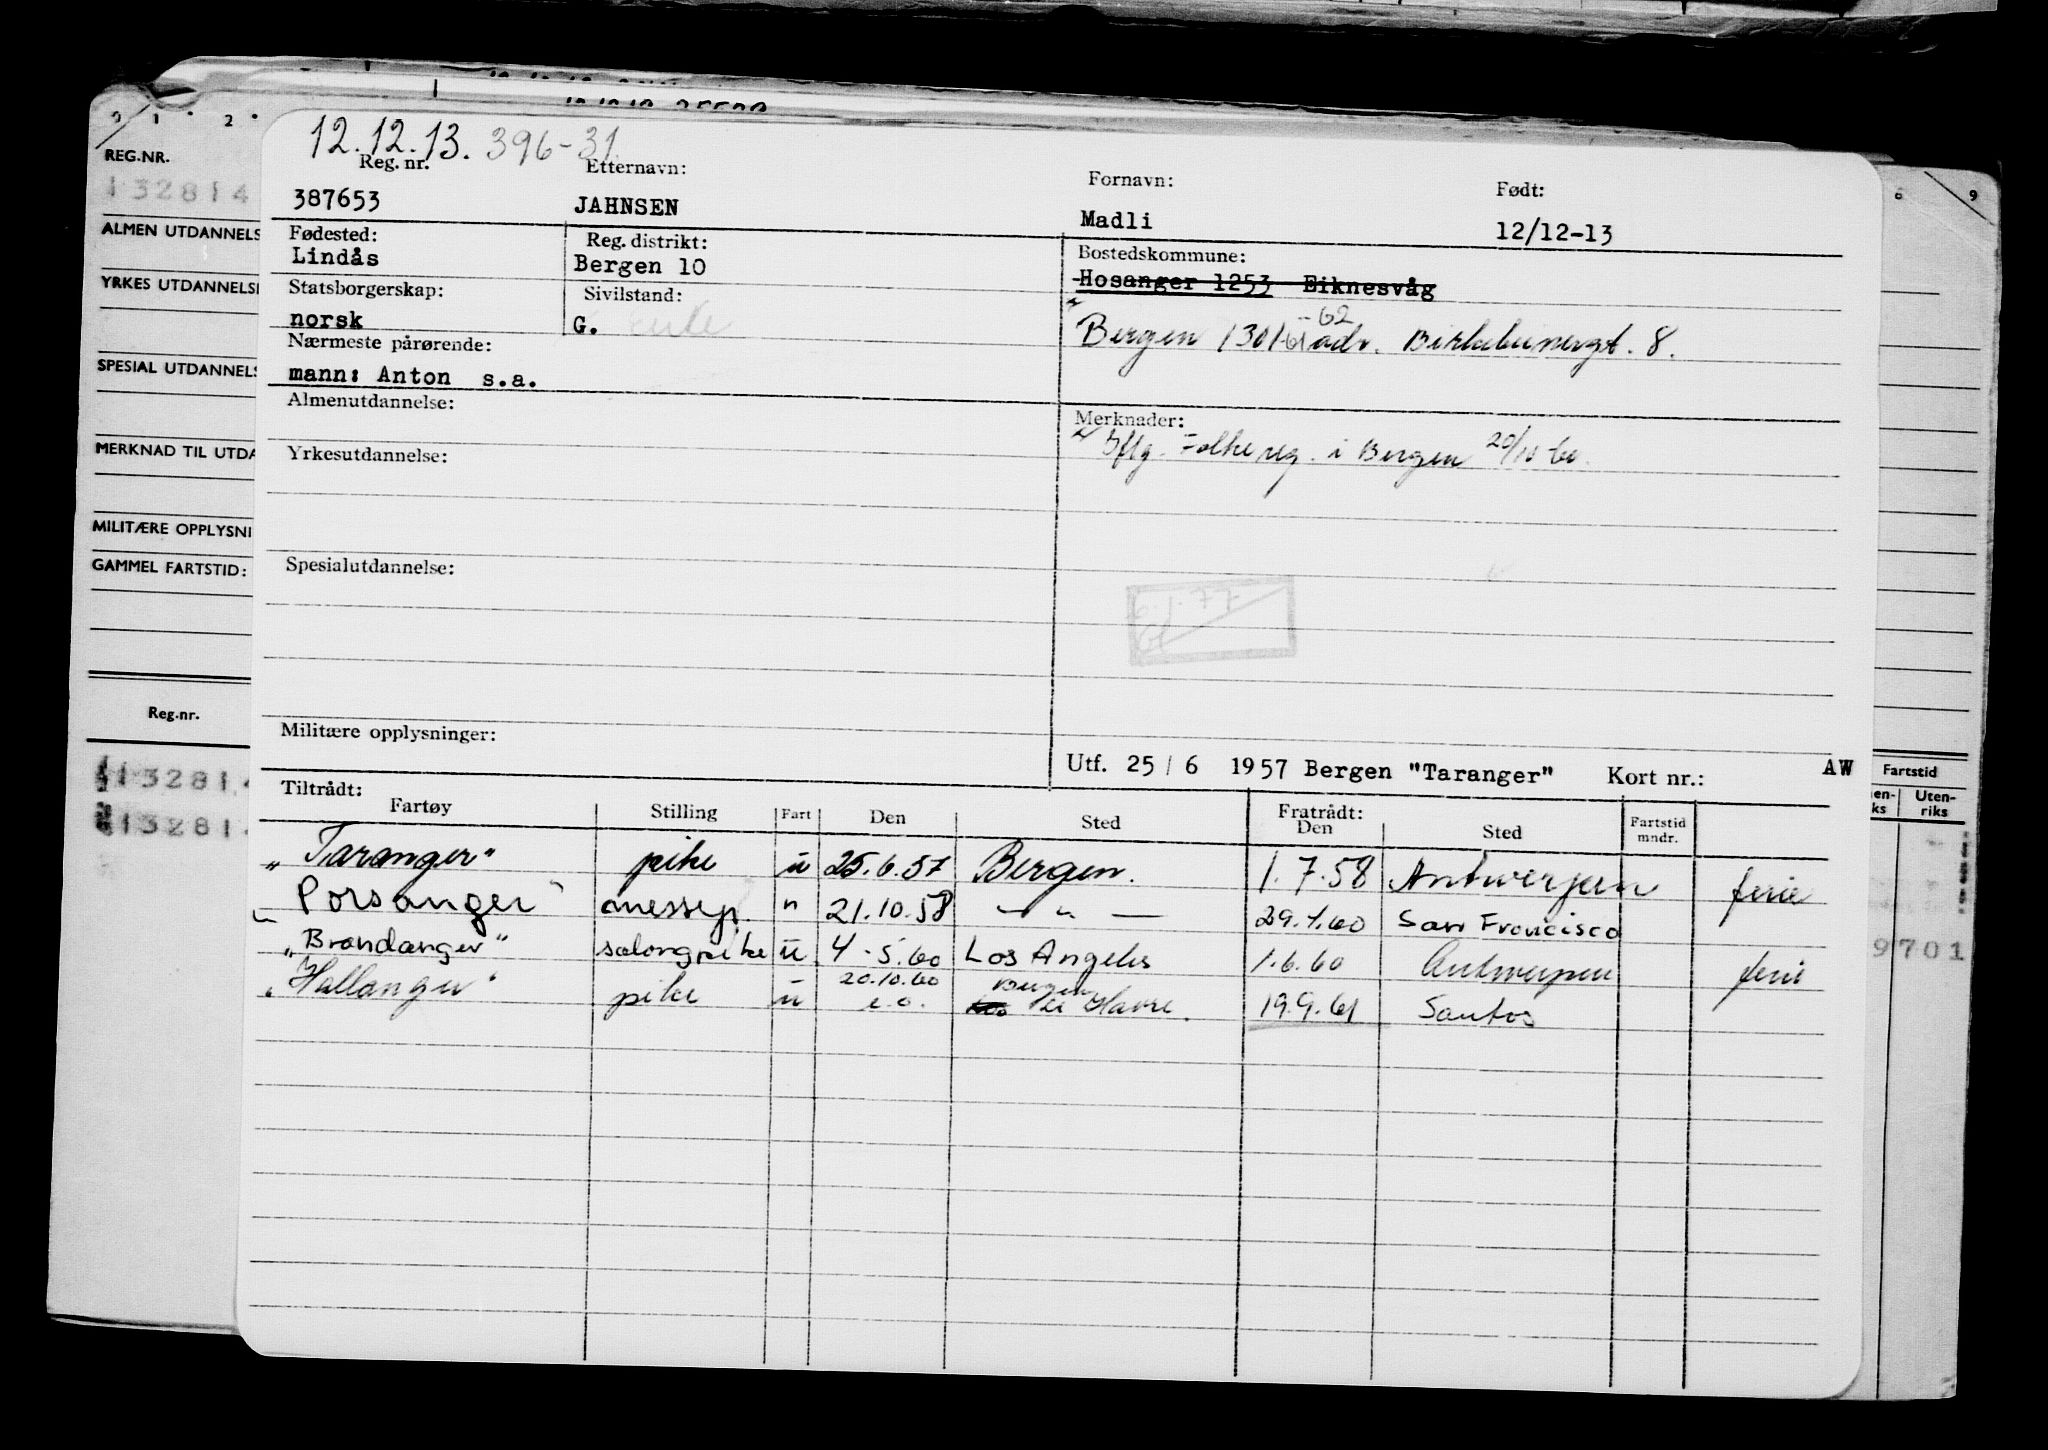 12.12.13. 396-31
Reg. nr. Etternavn: Fornavn: Født:
387653 JAHNSEN Madli 12/12-13
Fødested: Reg. distrikt: Bostedskommune:
Lindås Bergen 10 Hosanger 1253 Eiknesvåg
Statsborgerskap: Sivilstand:
norsk G.
-62
Bergen 1301-61 adr. Birkebeinergt. 8.
Nærmeste pårørende:
mann: Anton s.a.
Almenutdannelse: Merknader:
Iflg. Folkereg. i Bergen 20/10-60.
Yrkesutdannelse:
Spesialutdannelse:
6.1.77
Militære opplysninger:
Utf. 25/6 1957 Bergen "Taranger" Kort nr.: AW
Tiltrådt: Fratrådt:
Fartøy Stilling Fart Den Sted Den Sted Fartstid mndr.
"Taranger" pike u 25.6.57 Bergen. 1.7.58 Antwerpen ferie
"Porsanger" messep. " 21.10.58 — " — 29.1.60 San Francisco
"Brandanger" salongpike u 4-5.60 Los Angeles 1.6.60 Antwerpen ferie
20.10.60 Bergen
"Hallanger" pike u e.o. Le Havre. 19.9.61 Santos
0 1 2
REG.NR.
132814
ALMEN UTDANNELS
YRKES UTDANNELS
SPESIAL UTDANNELS
MERKNAD TIL UTDA
MILITÆRE OPPLYSNI
GAMMEL FARTSTID:
Reg.nr.
132814
13281
8 9
Fartstid
en-
ks
Uten-
riks
9701